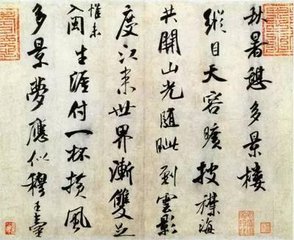 秋暑憩多景樓
縱目天容曠披襟海
共開山光隨眦到雲影
度江来世界漸雙足
惟未
生涯付一杯横風
多景夢應似穆王臺